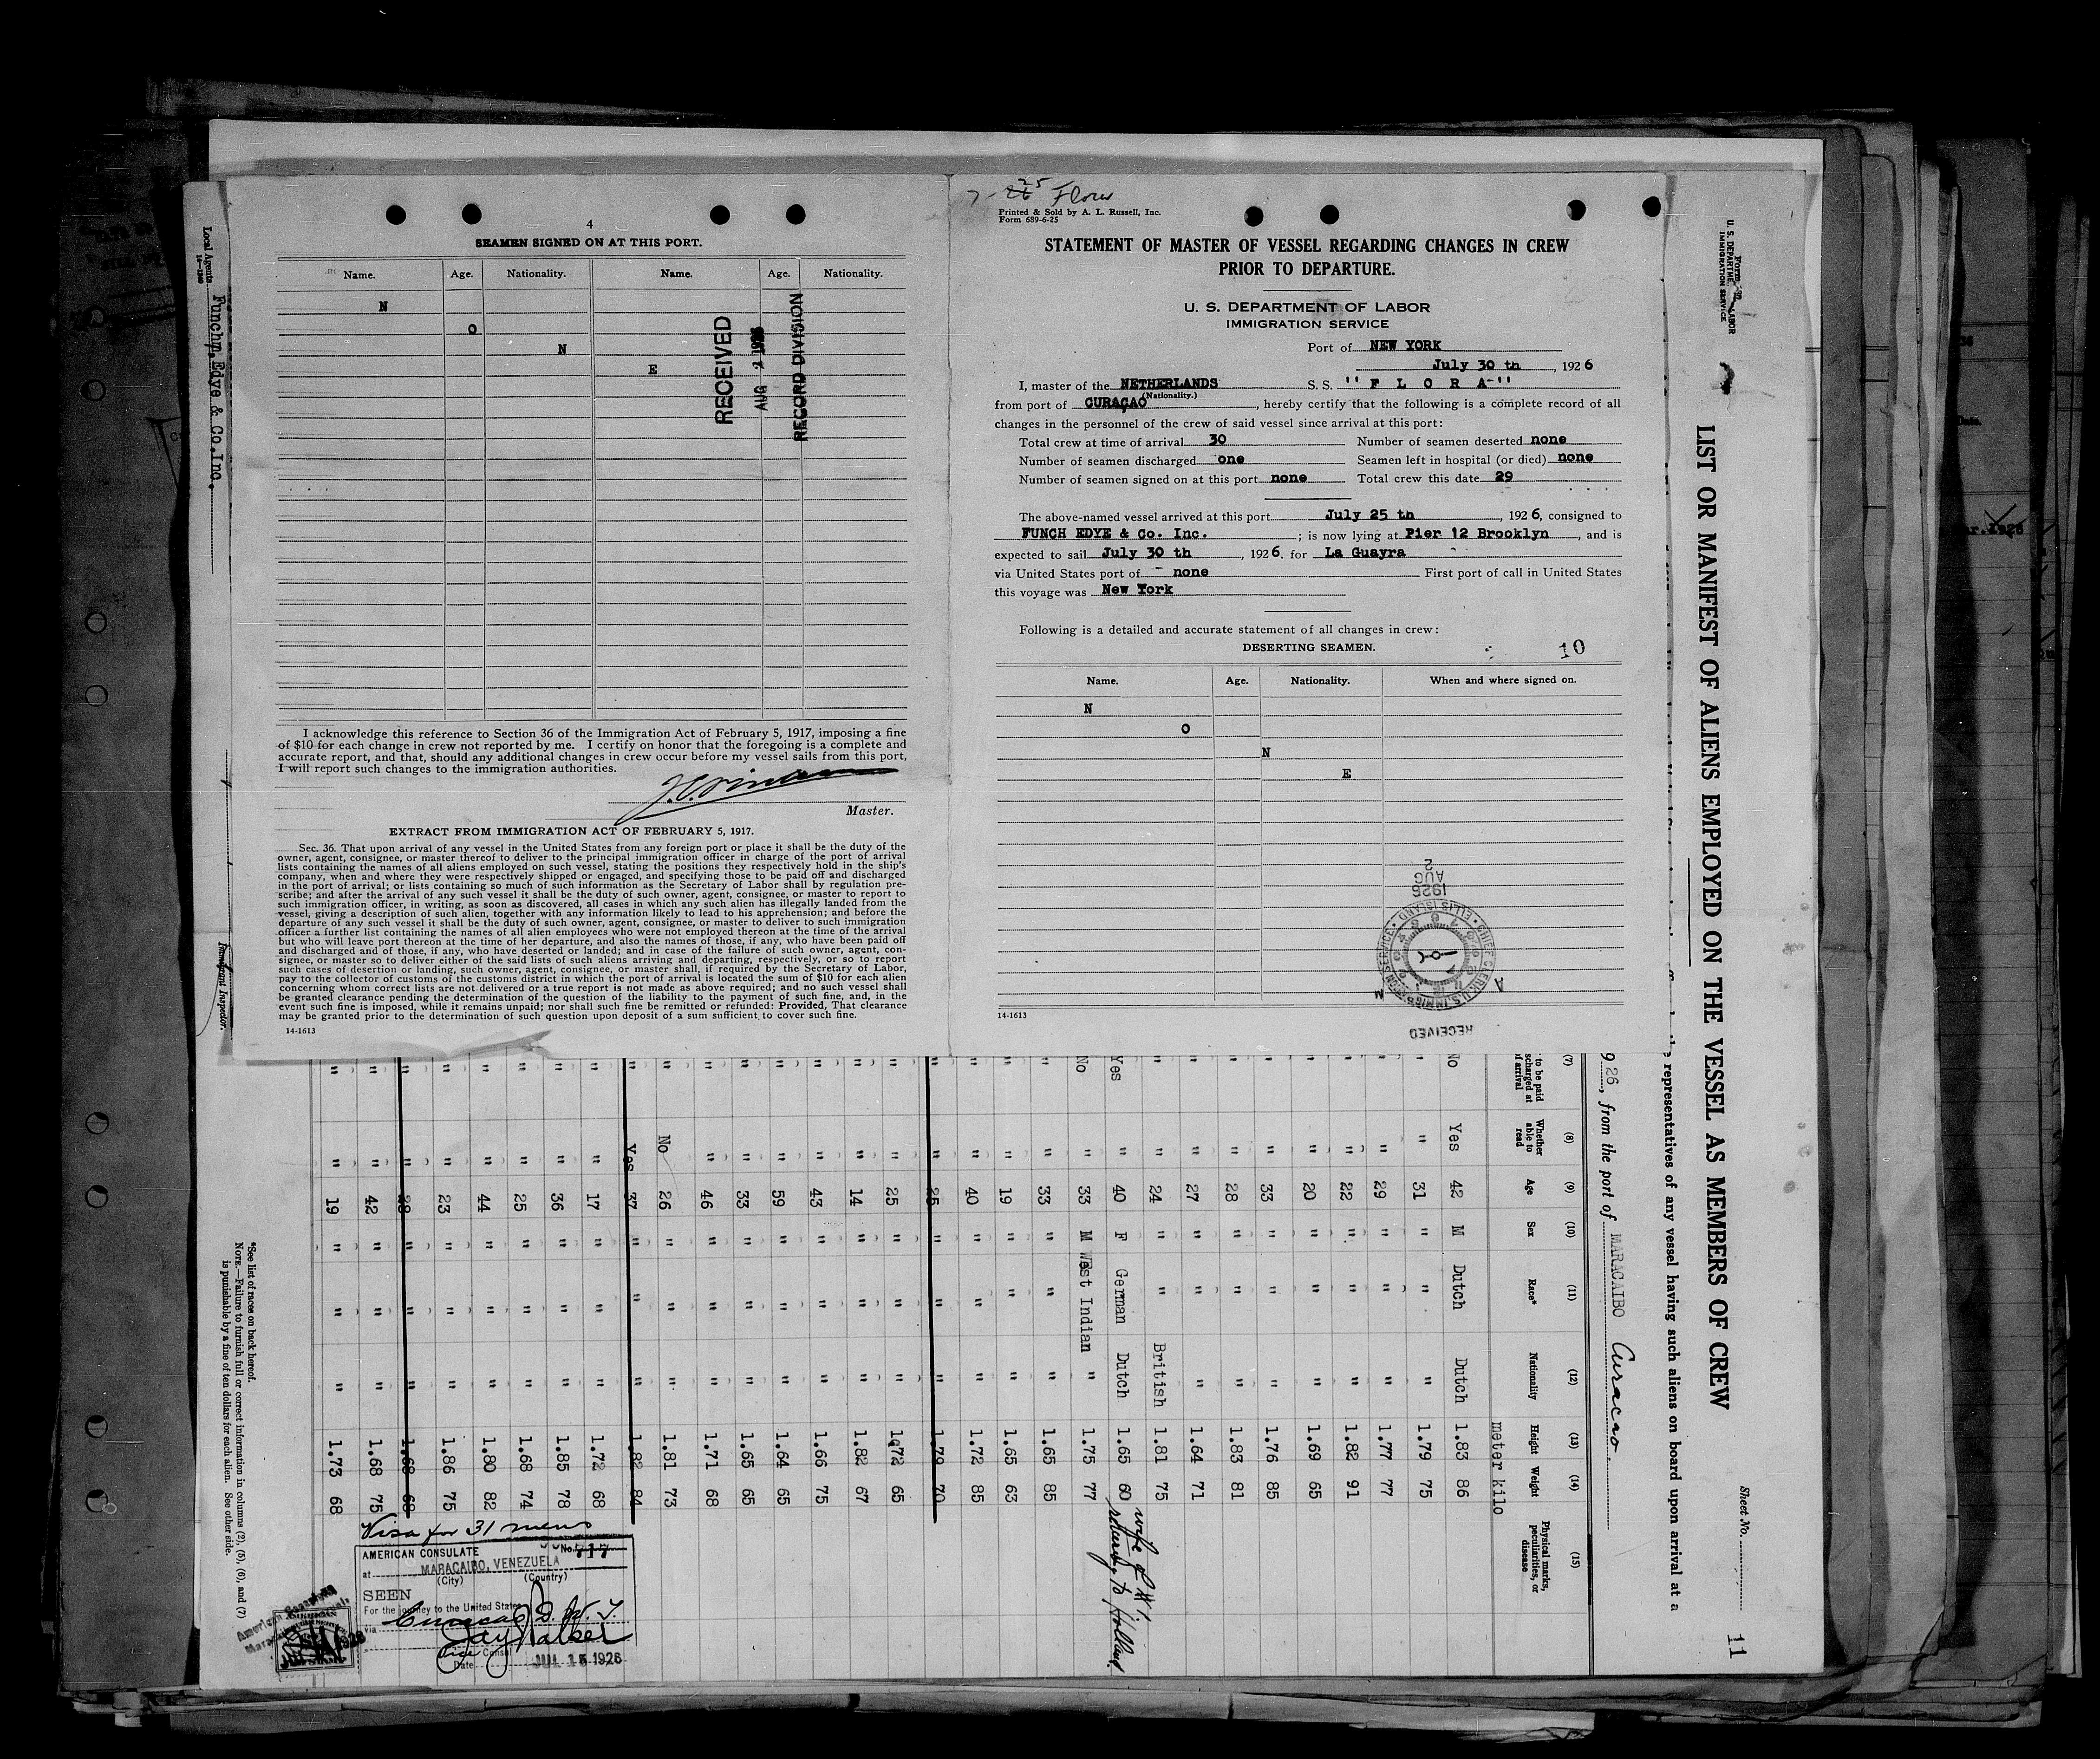 4
SEAMEN SIGNED ON AT THIS PORT.
Name. Age. Nationality. Name. Age. Nationality.
N
O
N
E
RECEIVED
AUG 2 1926
RECORD DIVISION
I acknowledge this reference to Section 36 of the Immigration Act of February 5, 1917, imposing a fine
of $10 for each change in crew not reported by me. I certify on honor that the foregoing is a complete and
accurate report, and that, should any additional changes in crew occur before my vessel sails from this port,
I will report such changes to the immigration authorities.
Master.
EXTRACT FROM IMMIGRATION ACT OF FEBRUARY 5, 1917.
Sec. 36. That upon arrival of any vessel in the United States from any foreign port or place it shall be the duty of the
owner, agent, consignee, or master thereof to deliver to the principal immigration officer in charge of the port of arrival
lists containing the names of all aliens employed on such vessel, stating the positions they respectively hold in the ship's
company, when and where they were respectively shipped or engaged, and specifying those to be paid off and discharged
in the port of arrival; or lists containing so much of such information as the Secretary of Labor shall by regulation pre-
scribe; and after the arrival of any such vessel it shall be the duty of such owner, agent, consignee, or master to report to
such immigration officer, in writing, as soon as discovered, all cases in which any such alien has illegally landed from the
vessel, giving a description of such alien, together with any information likely to lead to his apprehension; and before the
departure of any such vessel it shall be the duty of such owner, agent, consignee, or master to deliver to such immigration
officer a further list containing the names of all alien employees who were not employed thereon at the time of the arrival
but who will leave port thereon at the time of her departure, and also the names of those, if any, who have been paid off
and discharged and of those, if any, who have deserted or landed; and in case of the failure of such owner, agent, con-
signee, or master so to deliver either of the said lists of such aliens arriving and departing, respectively, or so to report
such cases of desertion or landing, such owner, agent, consignee, or master shall, if required by the Secretary of Labor,
pay to the collector of customs of the customs district in which the port of arrival is located the sum of $10 for each alien
concerning whom correct lists are not delivered or a true report is not made as above required; and no such vessel shall
be granted clearance pending the determination of the question of the liability to the payment of such fine, and, in the
event such fine is imposed, while it remains unpaid; nor shall such fine be remitted or refunded: Provided, That clearance
may be granted prior to the determination of such question upon deposit of a sum sufficient to cover such fine.
14-1613
7-26 25 Flora
Printed & Sold by A. L. Russell, Inc.
Form 689-6-25
STATEMENT OF MASTER OF VESSEL REGARDING CHANGES IN CREW
PRIOR TO DEPARTURE.
U. S. DEPARTMENT OF LABOR
IMMIGRATION SERVICE
Port of NEW YORK
July 30 th, 1926
I, master of the NETHERLANDS S. S. "F L O R A"
(Nationality.)
from port of CURAÇAO, hereby certify that the following is a complete record of all
changes in the personnel of the crew of said vessel since arrival at this port:
Total crew at time of arrival 30 Number of seamen deserted none
Number of seamen discharged one Seamen left in hospital (or died) none
Number of seamen signed on at this port none Total crew this date 29
The above-named vessel arrived at this port July 25 th, 1926, consigned to
FUNCH EDYE & Co. Inc.; is now lying at Pier 12 Brooklyn, and is
expected to sail July 30 th, 1926, for La Guayra
via United States port of none First port of call in United States
this voyage was New York
Following is a detailed and accurate statement of all changes in crew:
DESERTING SEAMEN.
10
Name. Age. Nationality. When and where signed on.
N
O
N
E
AUG 2
1926
CHIEF CLERK U.S. IMMIGRATION SERVICE ELLIS ISLAND
RECEIVED
14-1613
U. S. DEPARTMENT OF LABOR
IMMIGRATION SERVICE
LIST OR MANIFEST OF ALIENS EMPLOYED ON THE VESSEL AS MEMBERS OF CREW
Sheet No.
11
representatives of any vessel having such aliens on board upon arrival at a
926, from the port of MARACAIBO Curacao.
(7) (8) (9) (10) (11) (12) (13) (14) (15)
to be paid Whether able to read Age Sex Race* Nationality Height Weight Physical marks, peculiarities, or disease
meter kilo
No Yes 42 M Dutch Dutch 1.83 86
" " 31 " " " 1.79 75
" " 29 " " " 1.77 77
" " 22 " " " 1.82 91
" " 20 " " " 1.69 65
" " 33 " " " 1.76 85
" " 28 " " " 1.83 81
" " 27 " " " 1.64 71
" " 24 " " British 1.81 75
Yes " 40 F German Dutch 1.65 60 wife of #1. returning to Holland
No " 33 M West Indian " 1.75 77
" " 33 " " " 1.65 85
" " 19 " " " 1.65 63
" " 40 " " " 1.72 85
" " 25 " " " 1.79 70
" " 25 " " " 1.72 65
" " 14 " " " 1.82 67
" " 43 " " " 1.66 75
" " 59 " " " 1.64 65
" " 33 " " " 1.65 65
" " 46 " " " 1.71 68
" No 26 " " " 1.81 73
" Yes 37 " " " 1.82 84
" " 17 " " " 1.72 68
" " 36 " " " 1.85 78
" " 25 " " " 1.68 74
" " 44 " " " 1.80 82
" " 23 " " " 1.86 75
" " 28 " " " 1.68 68
" " 42 " " " 1.68 75
" " 19 " " " 1.73 68
Visa for 31 mens
AMERICAN CONSULATE No. 717
at MARACAIBO, VENEZUELA
(City) (Country)
SEEN
For the journey to the United States
via Curacao D. W. I.
Jay Walker
Vice Consul
Date JUL 15 1926
*See list of races on back hereof.
NOTE.—Failure to furnish full or correct information in columns (2), (5), (6), and (7)
is punishable by a fine of ten dollars for each alien. See other side.
Local Agents Funch, Edye & Co. Inc.
Immigrant Inspector.